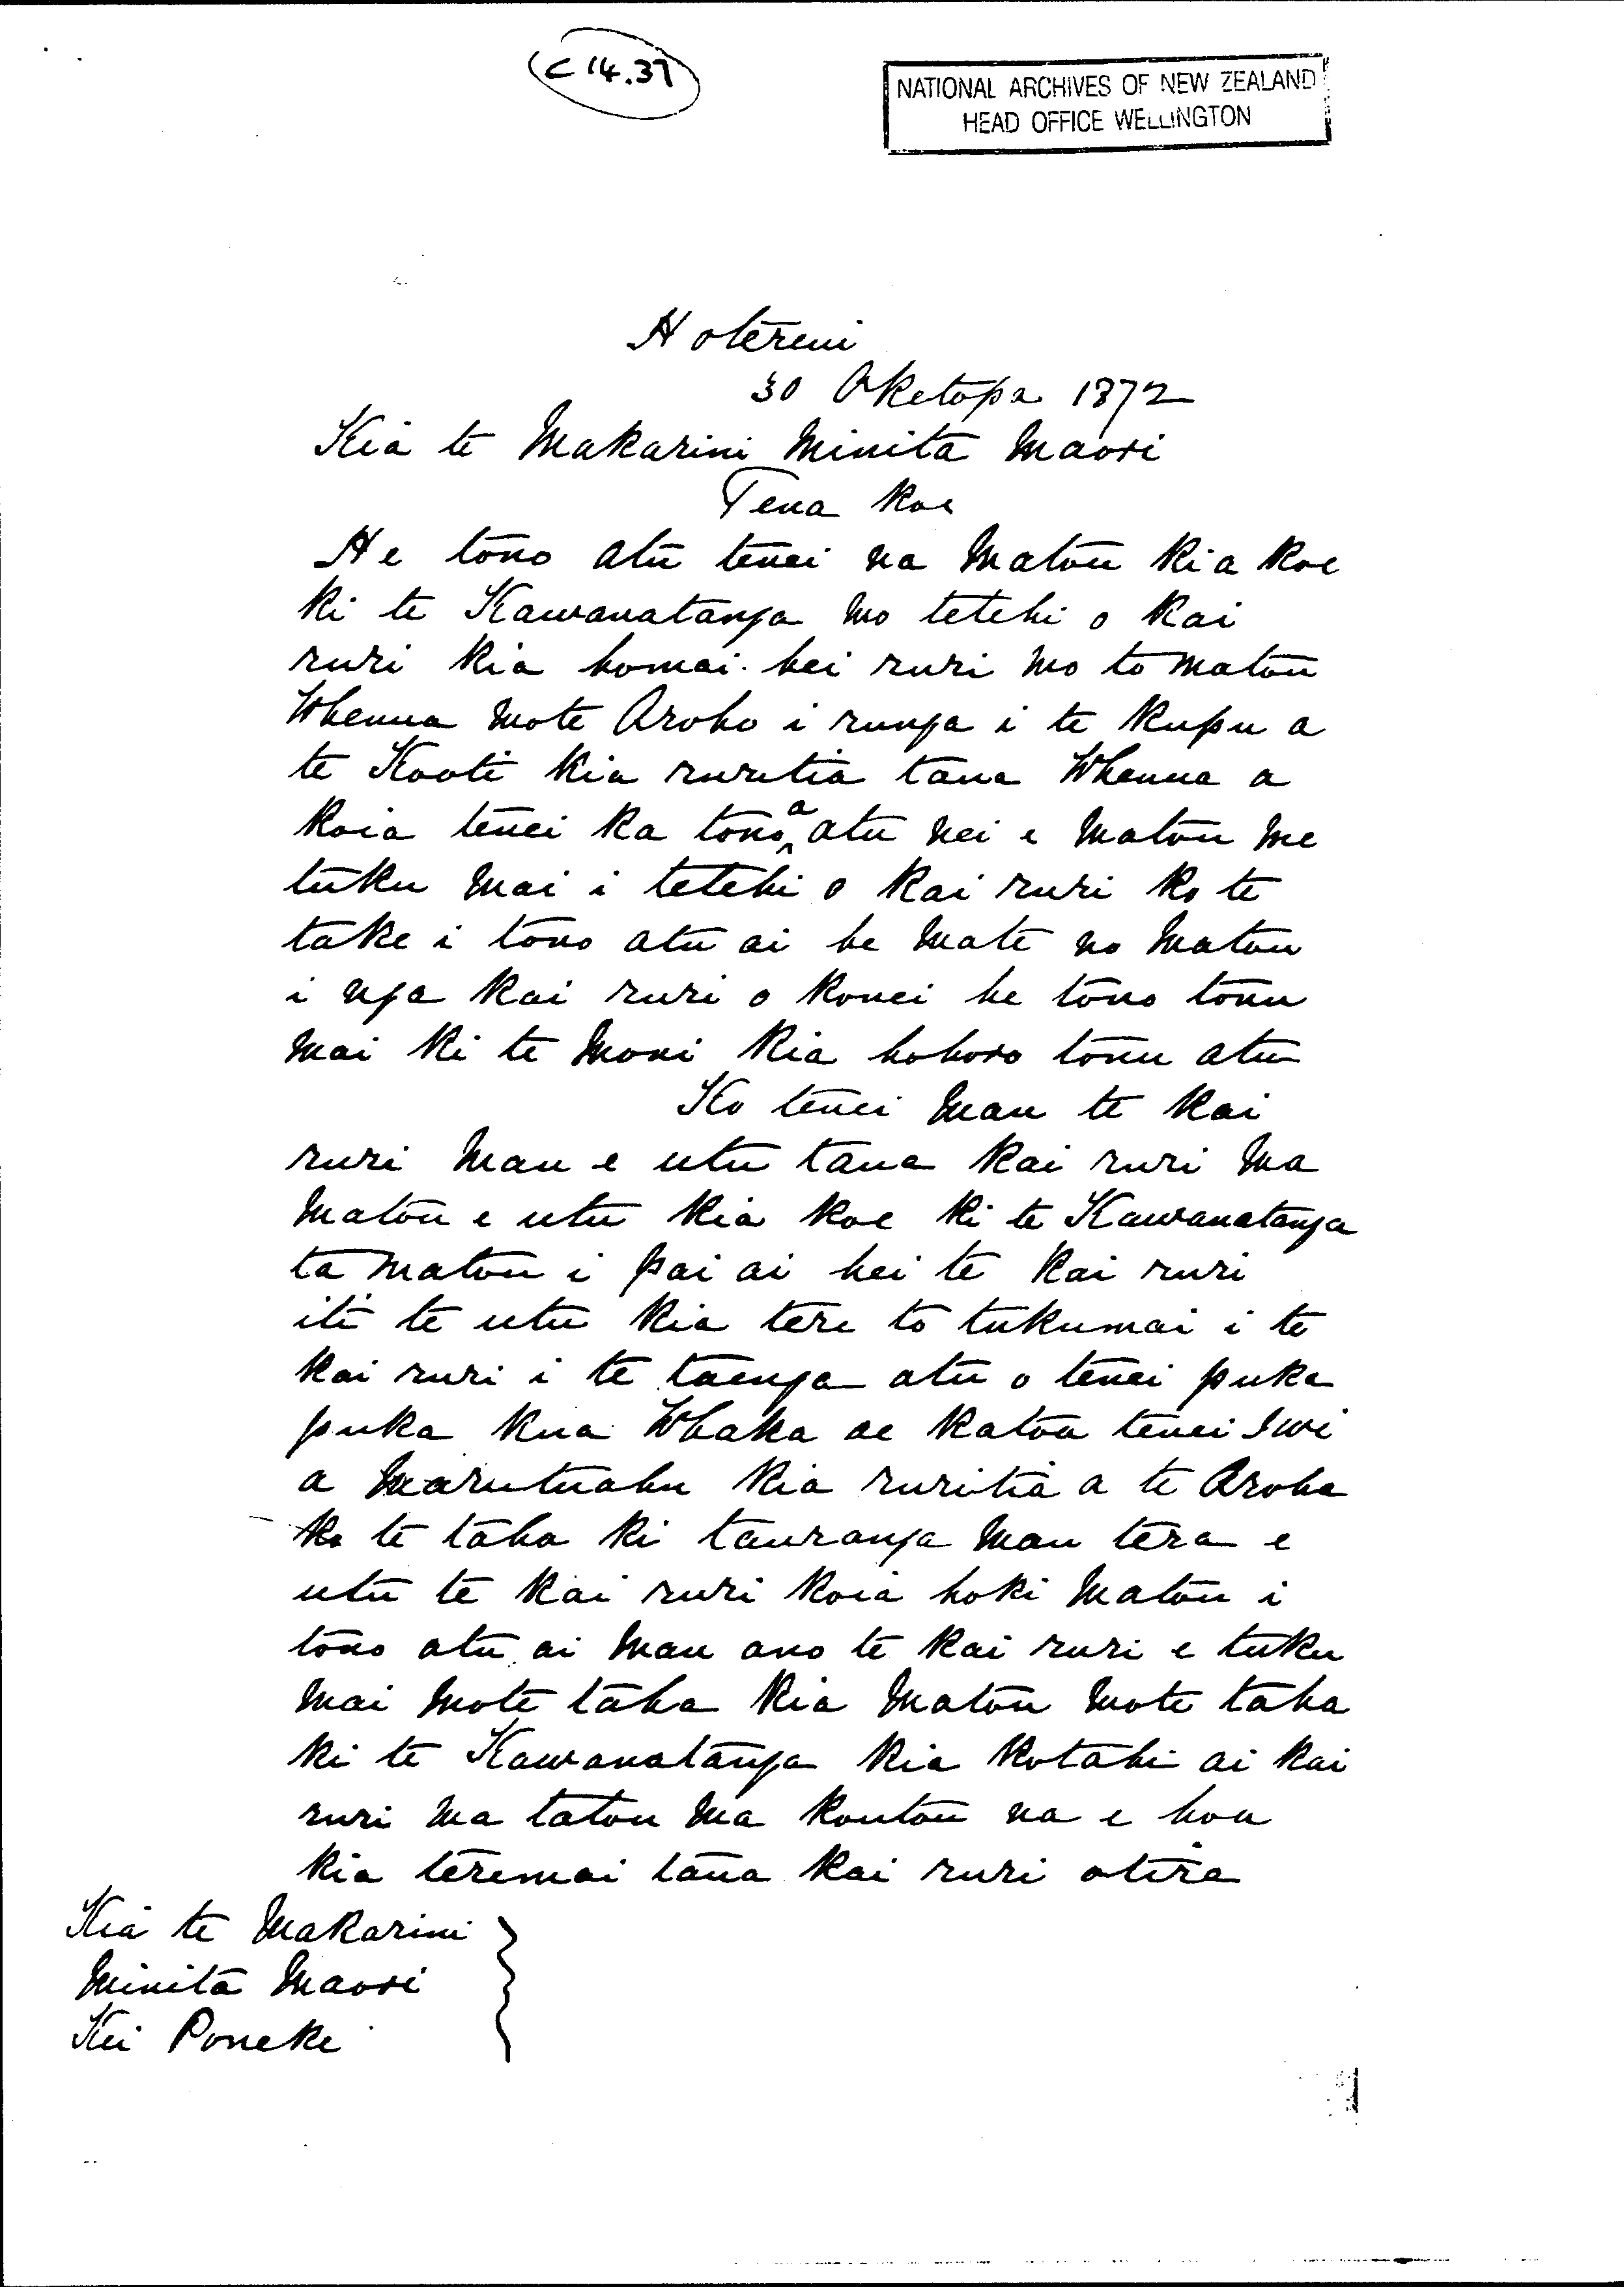 C 14.37
NATIONAL ARCHIVES OF NEW ZEALAND
HEAD OFFICE WELLINGTON
Hotereni
30 Oketopa 1872
Kia te Makarini Minita Maori
Tena koe
He tono atu tenei na Matou kia koe
ki te Kawanatanga mo tetehi o kai
ruri kia homai hei ruri mo to matou
Whenua mote Aroho i runga i te kupu a
te Kooti kia ruritia taua Whenua a
koia tenei ka tonoa atu nei e Matou me
tuku mai i tetehi o kai ruri ko te
take i tono atu ai he mate no Matou
i nga kai ruri o konei he tono tonu
mai ki te moni kia hohoro tonu atu
Ko tenei mau te kai
ruri mau e utu taua kai ruri ma
Matou e utu kia koe ki te Kawanatanga
ta matou i pai ai hei te kai ruri
iti te utu kia tere to tukumai i te
kai ruri i te taenga atu o tenei puka
puka kua Whaka ae katoa tenei Iwi
a Marutuahu kia ruritia a te Aroha
ko te taha ki tauranga mau tera e
utu te kai ruri koia hoki Matou i
tono atu ai mau ano te kai ruri e tuku
mai mote taha kia Matou mote taha
ki te Kawanatanga kia kotahi ai kai
ruri ma tatou ma koutou na e hoa
kia teremai taua kai ruri otira
Kia te Makarini
Minita Maori
Kei Poneke